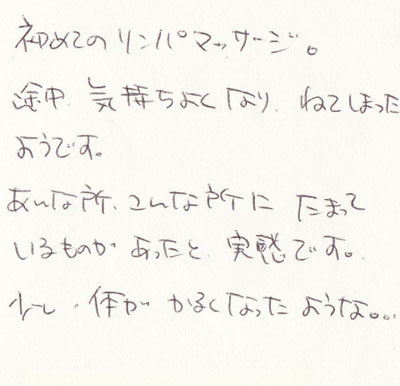 初めてのリンパマッサージ。
途中、気持ちよくなり、ねてしまった
ようです。
あんな所、こんな所に たまって
いるものが あったと、実感です。
少し、体が かるくなった ような。。。